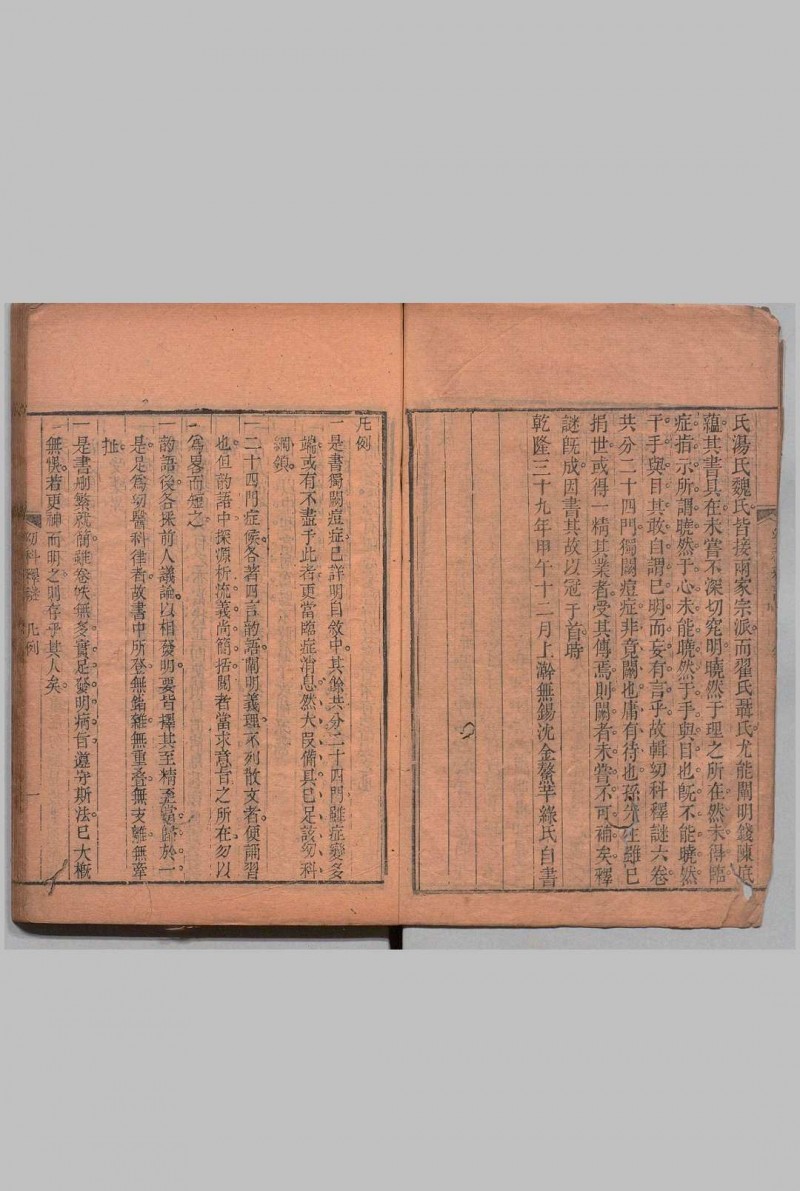 氏湯氏魏氏皆接兩家宗派而翟氏聶氏尤能闡明錢陳底
蘊其書具在未嘗不深切究明曉然于理之所在然未得臨
症指示所謂曉然于心未能曉然于手與目也既不能曉然
于手與目其敢自謂已明而妄有言乎故輯幼科釋謎六卷
共分二十四門獨闕痘症非竟闕也庸有待也孫先生雖已
捐世或得一精其業者受其傳焉則闕者未嘗不可補矣釋
謎既成因書其故以冠于首時
乾隆三十九年甲午十二月上澣無錫沈金鰲芊綠氏自書
凡例
一是書獨闕痘症已詳明自敘中其餘共分二十四門雖症變多
端或有不盡乎此者更當臨症消息然大段備具已足該幼科
一二十四門症候各著四言韵語闡明義理不列散文者便誦習
也但韵語中探源析流義尚簡括閱者當求意旨之所在勿以
為畧而短之
一韵語後各採前人議論以相發明要皆擇其至精至當歸於一
是足為幼醫科律者故書中所登無錯雜無重叠無支離無牽
扯
一是書刪繁就簡雖卷帙無多實足發明病旨遵守斯法已大概
無悞若更神而明之則存乎其人矣
幼科釋謎 凡例 一